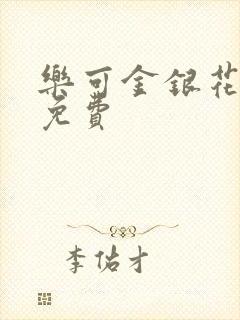 樂可金銀花
免費
李佑才